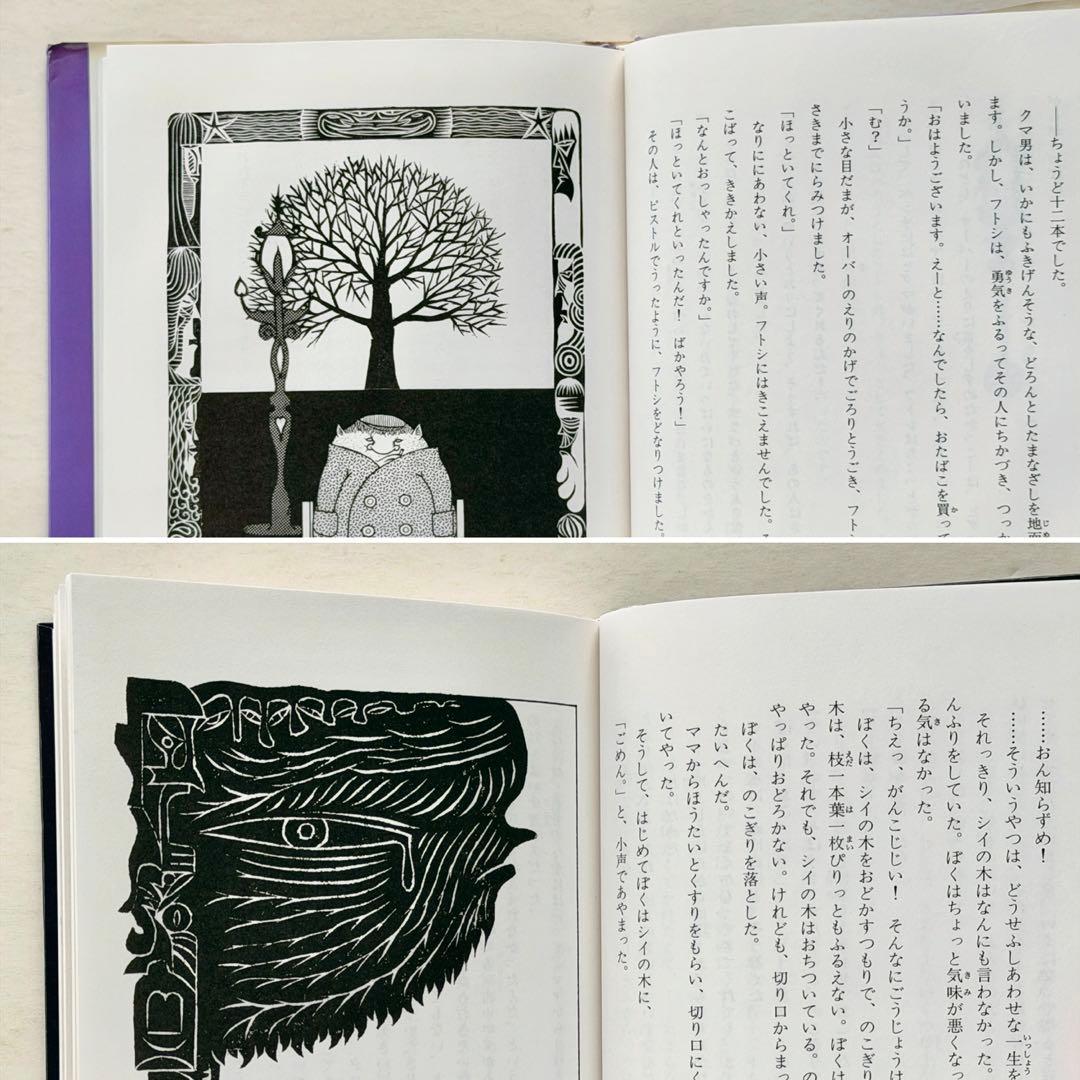 ――ちょうど十二本でした。
クマ男は、いかにもふきげんそうな、どろんとしたまなざしを地面
ます。しかし、フトシは、勇気をふるってその人にちかづき、つっか
いました。
「おはようございます。えーと……なんでしたら、おたばこを買って
うか。」
「む？」
小さな目だまが、オーバーのえりのかげでごろりとうごき、フト
さきまでにらみつけました。
「ほっといてくれ。」
なりににあわない、小さい声。フトシにはきこえませんでした。
こばって、ききかえしました。
「なんとおっしゃったんですか。」
「ほっといてくれといったんだ！　ばかやろう！」
その人は、ピストルでうったように、フトシをどなりつけました。
……おん知らずめ！
……そういうやつは、どうせふしあわせな一生を
それっきり、シイの木はなんにも言わなかった。
んふりをしていた。ぼくはちょっと気味が悪くなっ
る気はなかった。
「ちえっ、がんこじじい！　そんなにごうじょうは
ぼくは、シイの木をおどかすつもりで、のこぎり
木は、枝一本葉一枚ぴりっともふるえない。ぼくは
やった。それでも、シイの木はおちついている。の
やっぱりおどろかない。けれども、切り口からまっ
ぼくは、のこぎりを落とした。
たいへんだ。
ママからほうたいとくすりをもらい、切り口にく
いてやった。
そうして、はじめてぼくはシイの木に、
「ごめん。」と、小声であやまった。